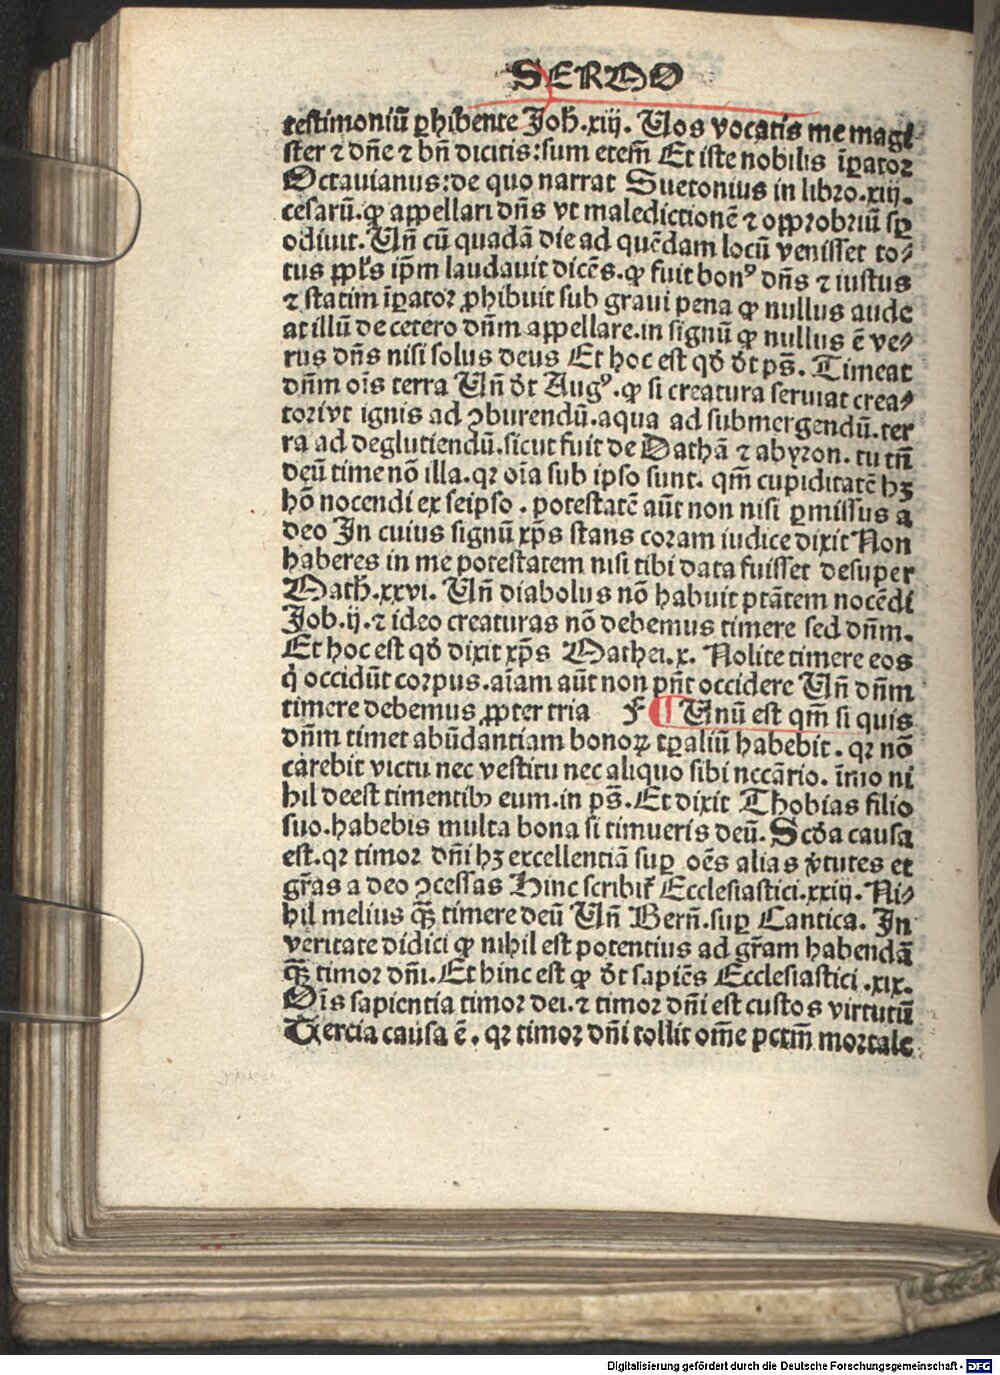 SERMO
testimoniū ꝑhibente Joh̄.xiij. Uos vocatis me magi
ster ⁊ dn̄e ⁊ bn̄ dicitis:sum etem̄ Et iste nobilis īꝑator
Octauianus:de quo narrat Suetonius in libro.xiij.
cesarū.ꝙ appellari dn̄s vt maledictionē ⁊ opprobriū sꝑ
odiuit.Un̄ cū quadā die ad quēdam locū venisset to⸗
tus ppl̄s ip̄m laudauit dicēs.ꝙ fuit bonꝰ dn̄s ⁊ iustus
⁊ statim īꝑator ꝓhibuit sub graui pena ꝙ nullus aude
at illū de cetero dn̄m appellare.in signū ꝙ nullus ē ve⸗
rus dn̄s nisi solus deus Et hoc est qd̄ dt̄ ps̄. Timeat
dn̄m oīs terra Un̄ dt̄ Augꝰ.ꝙ si creatura seruiat crea⸗
tori vt ignis ad ꝯburendū.aqua ad submergendū.ter
ra ad deglutiendū.sicut fuit de Dathā ⁊ abyron. tu tn̄
deū time nō illa.qꝛ oīa sub ipso sunt. qm̄ cupiditatē hꝫ
hō nocendi ex seipso . potestatē aūt non nisi ꝑmissus a
deo In cuius signū xp̄s stans coram iudice dixit Non
haberes in me potestatem nisi tibi data fuisset desuper
Math̄.xxvi. Un̄ diabolus nō habuit ptātem nocēdi
Job.ij.⁊ ideo creaturas nō debemus timere sed dn̄m.
Et hoc est qd̄ dixit xp̄s Mathei.x. Nolite timere eos
q̇ occidūt corpus.aīam aūt non pn̄t occidere Un̄ dn̄m
timere debemus ꝓpter tria F ¶ Unū est qm̄ si quis
dn̄m timet abūdantiam bonoꝝ tꝑaliū habebit . qꝛ nō
carebit victu nec vestitu nec aliquo sibi nccārio. īmo ni
hil deest timentibꝫ eum.in ps̄.Et dixit Thobias filio
suo.habebis multa bona si timueris deū. Scd̄a causa
est.qꝛ timor dn̄i hꝫ excellentiā suꝑ oēs alias v̇tutes et
gr̄as a deo ꝯcessas Hinc scribit᷑ Ecclesiastici.xxiij. Ni⸗
hil melius qꝫ̄ timere deū Un̄ Bern̄.suꝑ Cantica. In
veritate didici ꝙ nihil est potentius ad gr̄am habendā
qꝫ̄ timor dn̄i.Et hinc est ꝙ dt̄ sapiēs Ecclesiastici .xix.
Oīs sapientia timor dei.⁊ timor dn̄i est custos virtutū
Tercia causa ē. qꝛ timor dn̄i tollit om̄e pctm̄ mortale
Digitalisierung gefördert durch die Deutsche Forschungsgemeinschaft - DFG